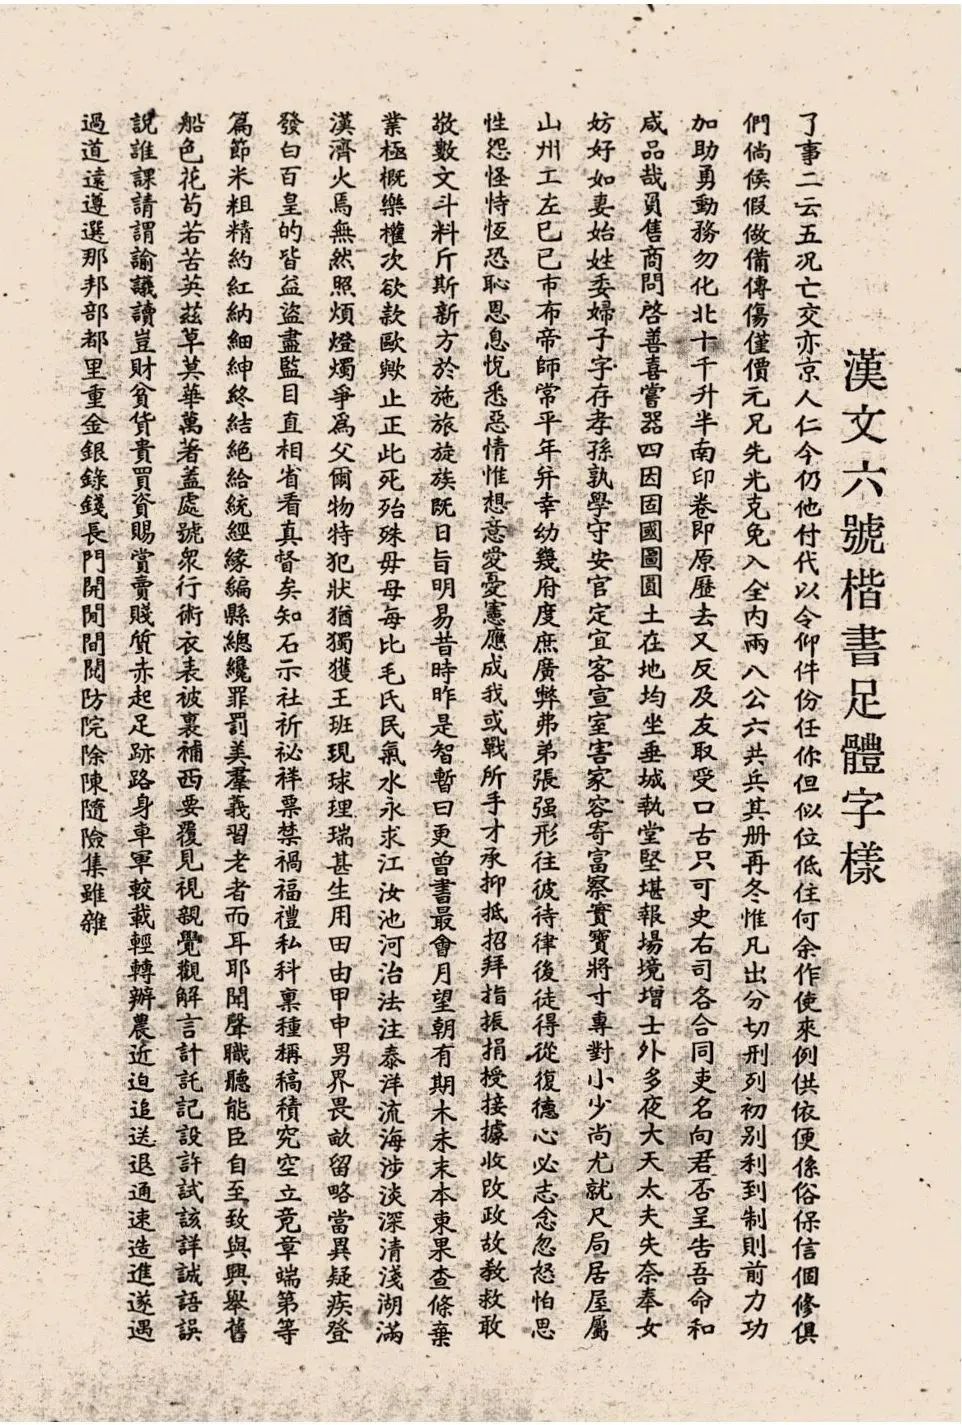 漢文六號楷書足體字樣
了事二云五况亡交亦京人仁今仍他付代以令仰件份任你但似位低住何余作使來例供依便係俗保信個修俱
們倘候假做備傳傷僅價元兄先光克免入全內兩八公六共兵其册再冬惟凡出分切刑列初別利到制則前力功
加助勇動務勿化北十千升半南印卷即原歷去又反及友取受口古只可史右司各合同吏名向君否呈告吾命和
咸品哉員售商問啓善喜嘗器四因固國圖圓土在地均坐垂城執堂堅堪報場境增士外多夜大天太夫失奈奉女
妨好如妻始姓委婦子字存孝孫孰學守安官定宜客宣室害家容寄富察實寶將寸專對小少尚尤就尺局居屋屬
山州工左巳已市布帝師常平年并幸幼幾府度庶廣弊弗弟張强形往彼待律後徒得從復德心必志念忽怒怕思
性怨怪恃恆恐恥恩息悅悉惡情惟想意愛憂憲應成我或戰所手才承抑抵招拜指振捐授接據收改政故教救敢
敬數文斗料斤斯新方於施旅旋族既日旨明易昔時昨是智暫曰更曾書最會月望朝有期木未末本東果查條棄
業極概樂權次欲款歐歟止正此死殆殊毋母每比毛氏民氣水永求江汝池河治法注泰洋流海涉淡深清淺湖滿
漢濟火焉無然照煩燈燭爭爲父爾物特犯狀猶獨獲王班現球理瑞甚生用田由甲申男界畏畝留略當異疑疾登
發白百皇的皆益盜盡監目直相省看真督矣知石示社祈祕祥票禁禍福禮私科稟種稱稿積究空立竟章端第等
篇節米粗精約紅納細紳終結絕給統經緣編縣總纔罪罰美羣義習老者而耳耶聞聲職聽能臣自至致與興舉舊
船色花苟若苦英茲草莫華萬著蓋處號衆行術衣表被裏補西要覆見視親覺觀解言計託記設許試該詳誠語誤
說誰課請謂諭議讀豈財貧貨貴買資賜賞賣賤質赤起足跡路身車軍較載輕轉辦農近迫追送退通速造進遂遇
過道遠遵選那邦部都里重金銀錄錢長門開閒間閱防院除陳隨險集雖雜